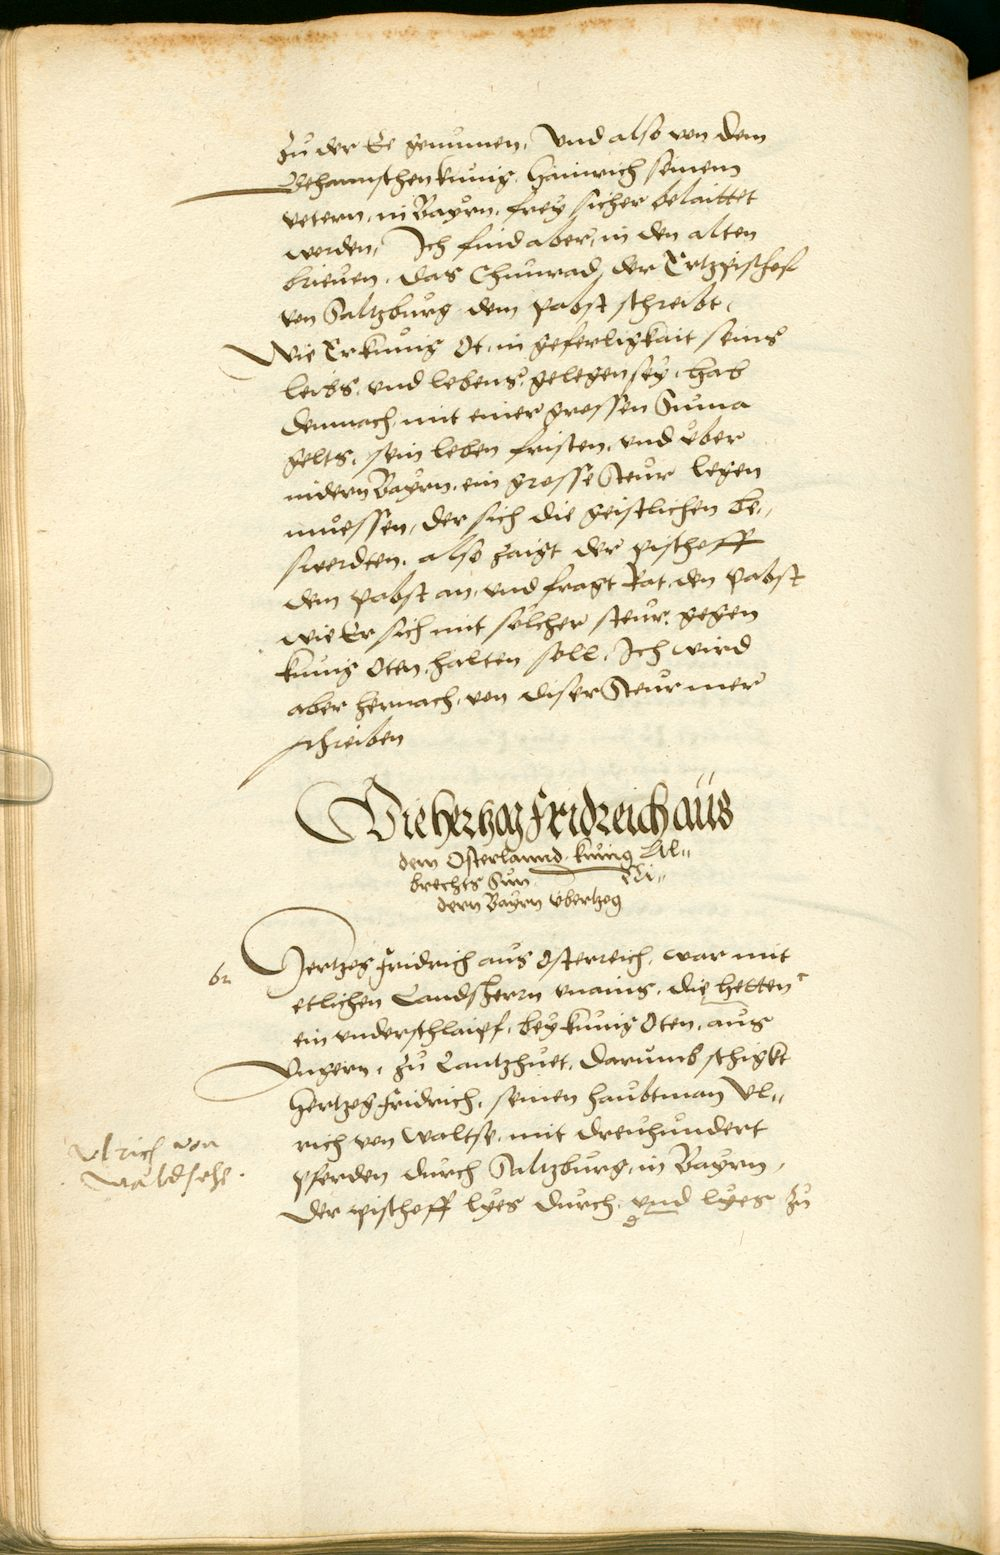 zu der Ee genumen, Und also von dem
Behamischen kunig, Hainrich seinem
vetern, in Bayrn, frey sicher belaittet
worden, Ich find aber, in den alten
brieven, das Chunrad, der Ertzpischof
von Saltzburg dem pabst schreibt,
Wie Er kunig Ot, in geferligkait seins
leibs, und lebens, gelegen sey, hab
demnach, mit einer grossen Suma
gelts, sein leben fristen, und über
nidern Bayrn, ein grosse Steur legen
muessen, der sich die geistlichen be,,
swerdten, also zaigt der pischoff
dem pabst an, und fragt Rat, den pabst
wie Er sich mit solcher steur, gegen
kunig Oten, halten soll, Ich wird
aber hernach, von diser Steur mer
schreiben
Wie hertzog Fridreich aus
dem Osterlannd, kunig Al,,
brechts Sun Ni,,
dern Bayrn übertzog
Hertzog Fridrich aus Osterreich, war mit
etlichen Landsherrn unains, die hetten
ein underschlaipf, bey kunig Oten, aus
Ungern, zu Lantzhuet, darumb schigkt
Hertzog Fridrich, seinen haubtman Ul,,
rich von Waltse, mit dreuhundert
pferden durch Saltzburg, in Bayrn,
der pischoff lyes durch, und lyes zu
Ulrich von
Waldsehe.